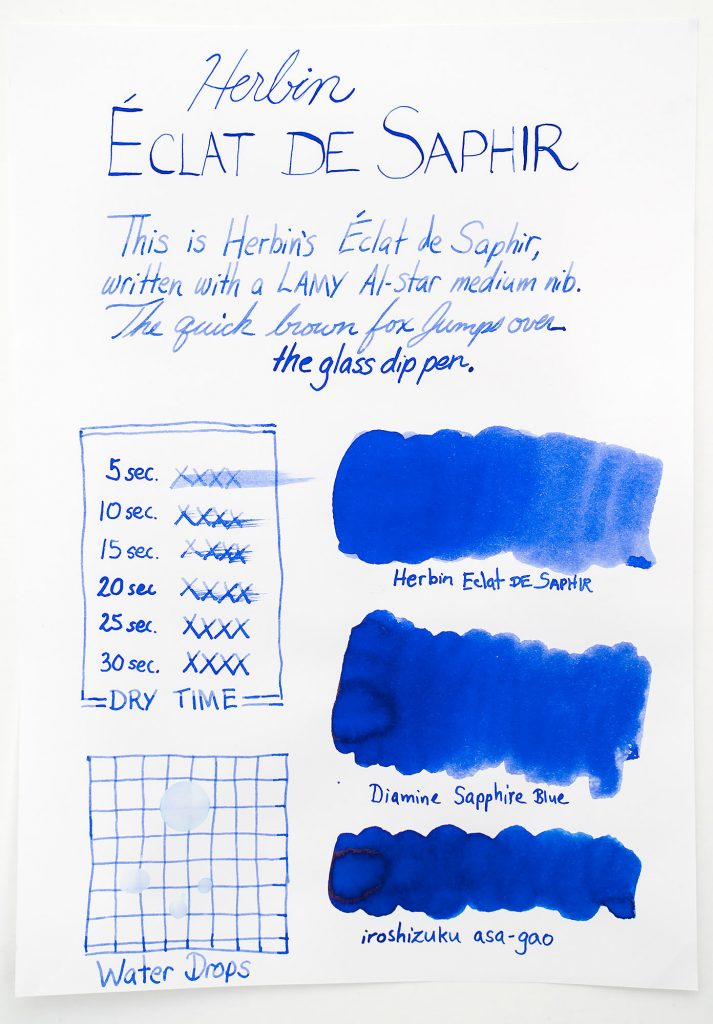 Herbin
ÉCLAT DE SAPHIR
This is Herbin's Éclat de Saphir,
written with a LAMY Al-star medium nib.
The quick brown fox Jumps over
the glass dip pen.
5 sec. XXXX
10 sec. XXXX
15 sec. XXXX
20 sec XXXX
25 sec. XXXX
30 sec. XXXX
DRY TIME
Herbin Eclat DE SAPHIR
Diamine Sapphire Blue
Water Drops
iroshizuku asa-gao